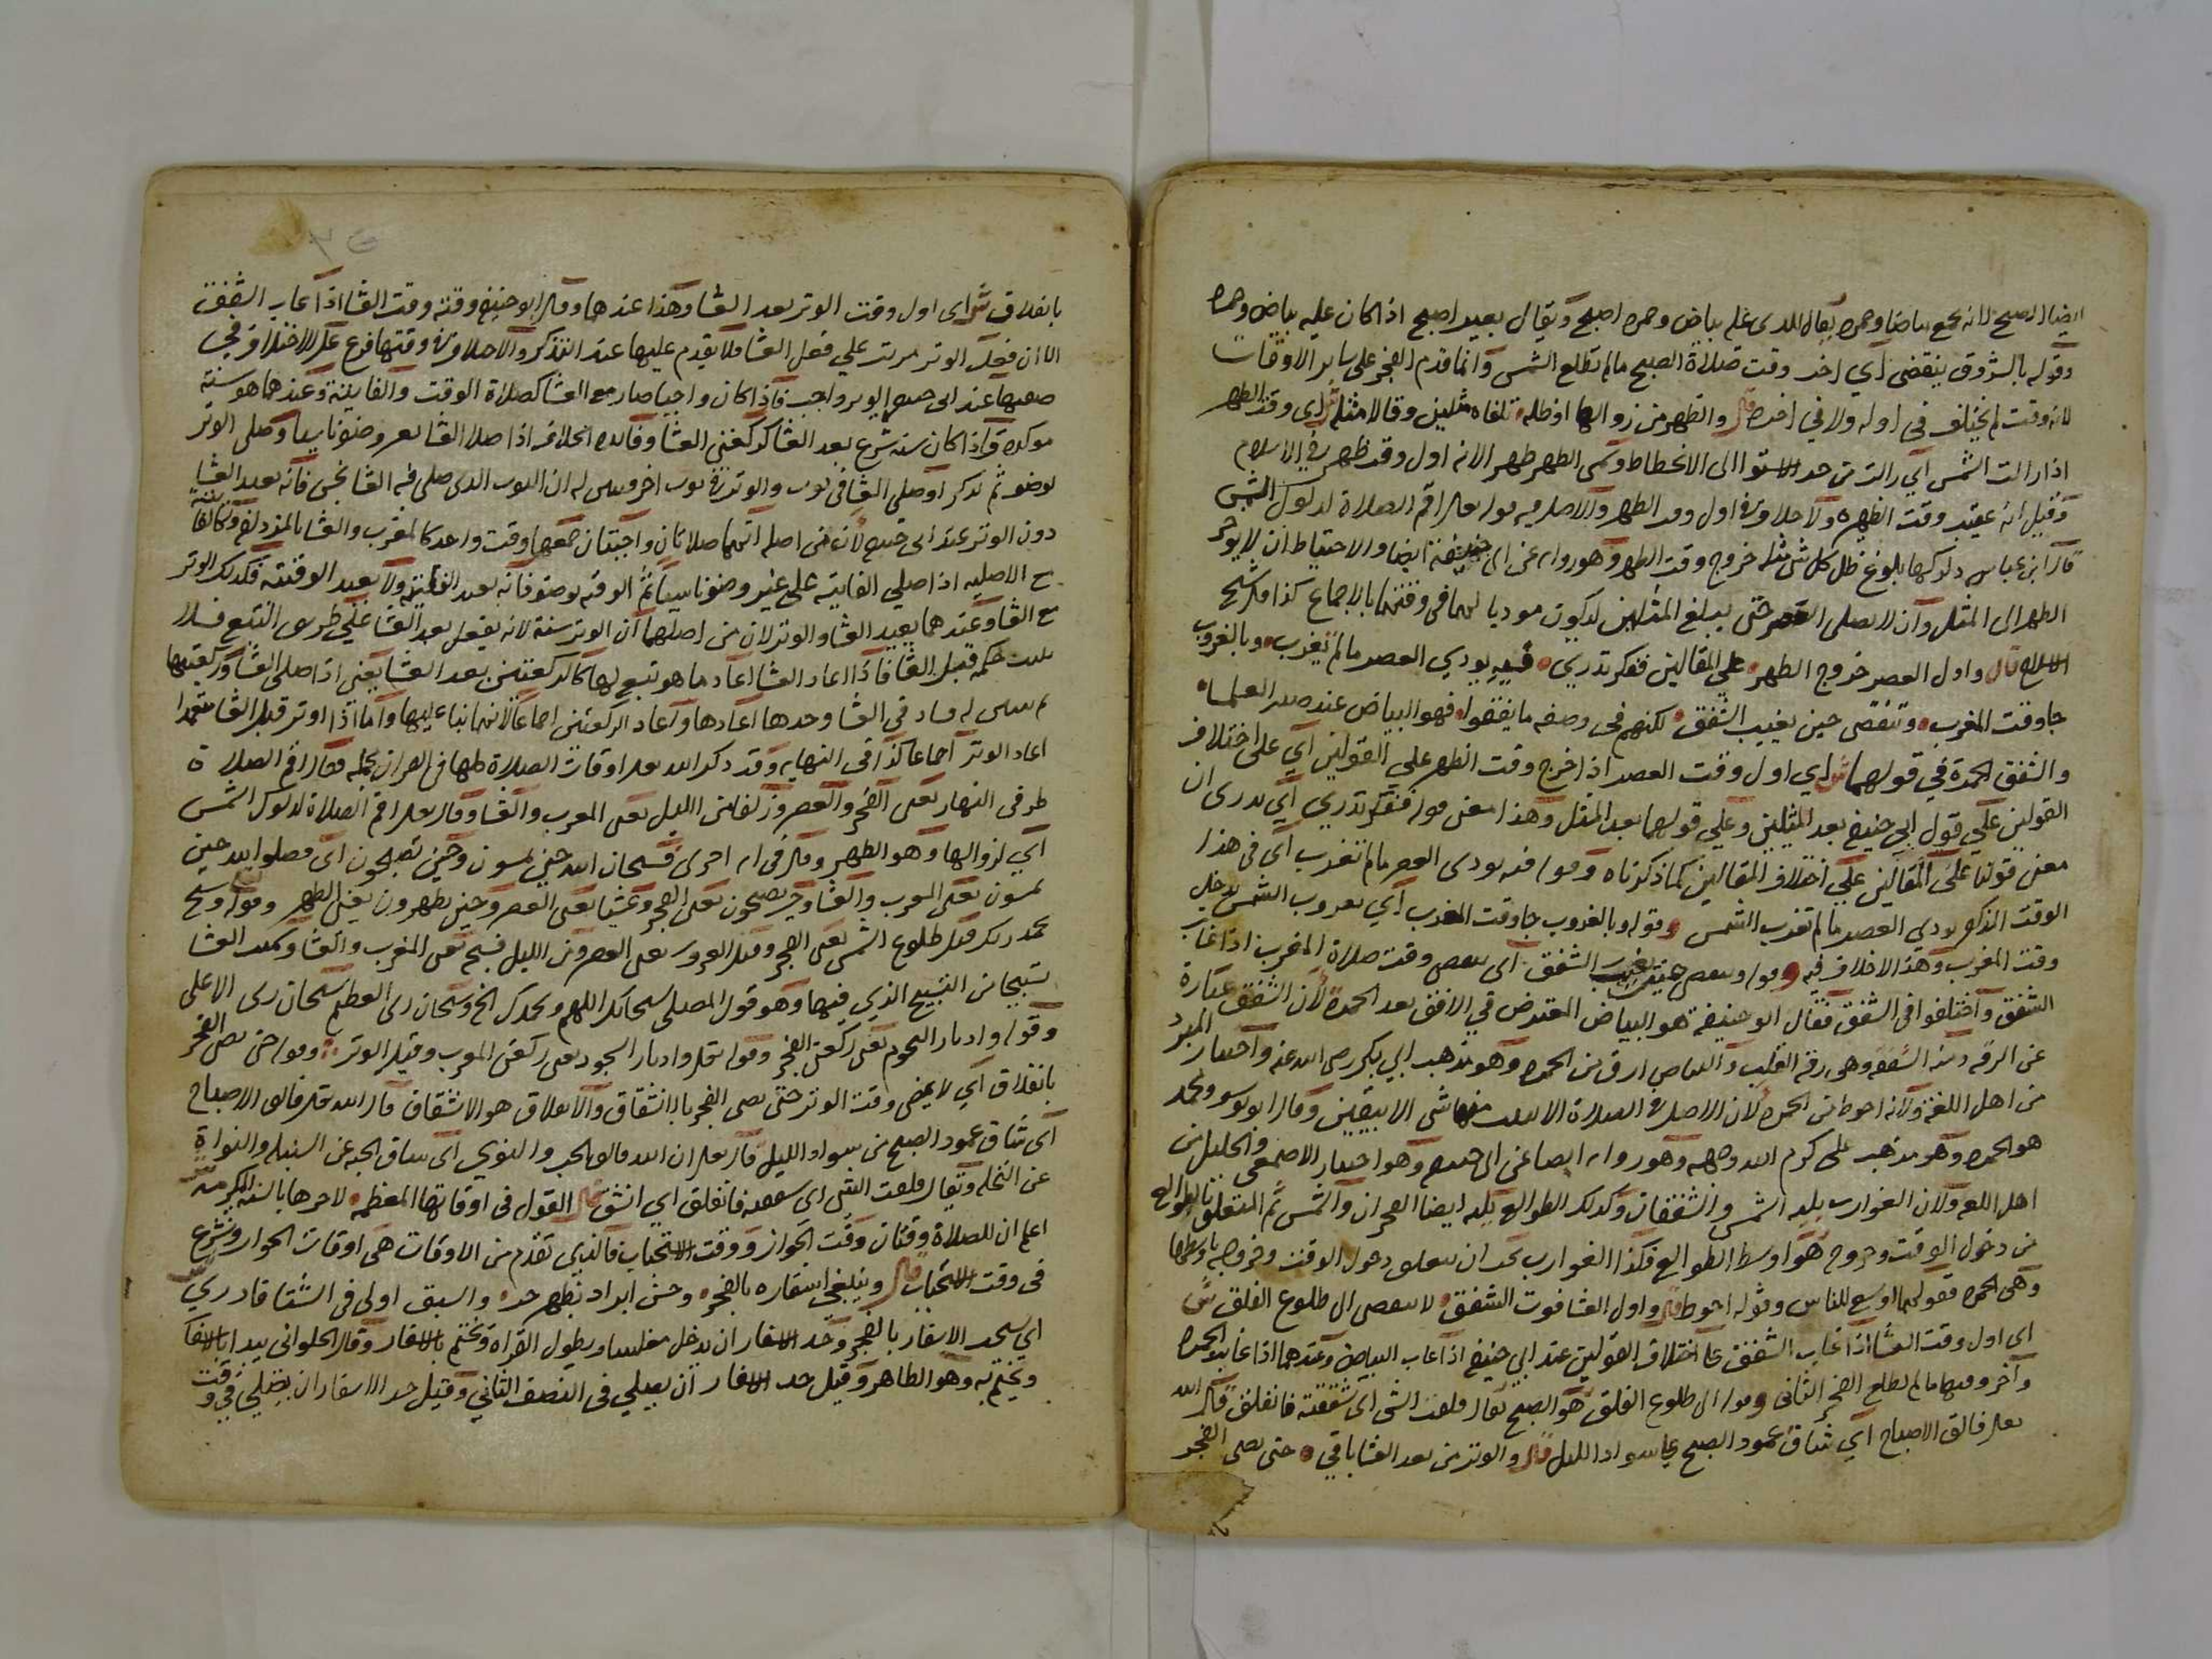 ايضا الصبح لانه يجمع بياضا وحمره يقال للذي عليه بياض وحمره اصبح ويقال بعير اصبح اذا كان عليه بياض وحمره
وقوله بالشروق ينقضي اي اخر وقت صلاة الصبح مالم تطلع الشمس وانما قدم الفجر على ساير الاوقات
لانه وقت لم يختلف في اوله ولا في اخره قال والظهر من زوالها اذ ظله تلفاه مثلين وقالا مثله ش اي وقت الظهر
اذا زالت الشمس اي زالت من حد الاستوا الى الانحطاط وسمي الظهر ظهرا لانه اول وقت ظهر في الاسلام
وقيل انه عقيب وقت الظهيره ولا خلاف في اول وقت الظهر والاصل فيه قوله تعالى اقم الصلاة لدلوك الشمس
قال ابن عباس دلوكها بلوغ ظل كل شي مثله خروج وقت الظهر وهو روايه عن ابي حنيفة ايضا والاحتياط ان لا يوخر
الظهر الى المثل وان لا يصلي العصر حتى يبلغ المثلين ليكون موديا لهما في وقتهما بالاجماع كذا ذكر شيخ
الاسلام قال واول العصر خروج الظهر على المقالين ففكر تدري فيه يودي العصر مالم تغرب وبالغروب
جا وقت المغرب وتنقضي حين يغيب الشفق لكنهم في وصفه ما يتفقوا فهو البياض عند صدر العلما
والشفق الحمرة في قولهما ش اي اول وقت العصر اذا خرج وقت الظهر علي القولين اي على اختلاف
القولين علي قول ابي حنيفه بعد المثلين وعلي قولهما بعد المثل وهذا معنى قوله ففكر تدري اي تدري ان
معنى قولنا على المقالين علي اختلاف المقالين كما ذكرناه وقوله فيه يودي العصر مالم تغرب اي في هذا
الوقت المذكور يودي العصر مالم تغرب الشمس وقوله وبالغروب جا وقت المغرب اي بغروب الشمس يدخل
وقت المغرب وهذا لا خلاف فيه وقوله وينقضي حين يغيب الشفق اي ينقضي وقت صلاة المغرب اذا غاب
الشفق واختلفوا في الشفق فقال ابو حنيفة هو البياض المعترض في الافق بعد الحمرة لان الشفق عبارة
عن الرقه ومنه الشفقه وهي رقة القلب والبياض ارق من الحمره وهو مذهب ابي بكر رضي الله عنه واختيار المبرد
من اهل اللغة ولانه احوط من الحمره لان الاصل في الصلاة ان لا يثبت منها شي الا بيقين وقال ابو يوسف ومحمد
هو الحمره وهو مذهب على كرم الله وجهه وهو روايه ايضا عن ابي حنيفه وهو اختيار الاصمعي والخليل من
اهل اللغه ولان الغوارب ثلثه الشمس والشفقان وكذلك الطوالع ثلثه ايضا الفجران والشمس ثم المتعلق بالطوالع
من دخول الوقت وخروجه هو اوسط الطوالع فكذا الغوارب يجب ان يتعلق دخول الوقت وخروجه باوسطها
وهي الحمره فقولهما اوسع للناس وقوله احوط قال واول العشا فوت الشفق لا ينقضي الى طلوع الفلق ش
اي اول وقت العشا اذا غاب الشفق على اختلاف القولين عند ابي حنيفه اذا غاب البياض وعندهما اذا غابت الحمره
وآخر وقتها مالم يطلع الفجر الثاني وقوله الى طلوع الفلق هو الصبح يقال فلقت الشي اي شققته فانفلق قال الله
تعالى فالق الاصباح اي شاق عمود الصبح عن سواد الليل قال والوتر من بعد العشا باقي حتى يضي الفجر
بانفلاق ش اي اول وقت الوتر بعد العشا وهذا عندهما وقال ابو حنيفه وقته وقت العشا اذا غاب الشفق
الا ان فعل الوتر مرتب علي فعل العشا فلا يقدم عليها عند التذكر والاختلاف في وقتها فرع على الاختلاف في
صفتها عند ابي حنيفه الوتر واجب فاذا كان واجبا صار مع العشا كصلاة الوقت والفايتة وعندهما هو سنة
موكده واذا كان سنه شرع بعد العشا كركعتي العشا وفائده الخلاف اذا صلا العشا بغير وضو ناسيا وصلى الوتر
بوضو ثم تذكر او صلى العشا في ثوب والوتر في ثوب اخر وتبين له ان الثوب الذي صلى فيه العشا نجس فانه يعيد العشا
دون الوتر عند ابي حنيفه لان من اصله انهما صلاتان واجبتان جمعهما وقت واحد كالمغرب والعشا بالمزدلفه وكالفايتة
مع الاصليه اذا صلي الفايته على غير وضو ناسيا ثم الوقتيه بوضو فانه يعيد الفايته ولا يعيد الوقتيه فكذلك الوتر
مع العشا وعندهما يعيد العشا والوتر لان من اصلهما ان الوتر سنة لانه يفعل بعد العشا علي طريق التبع فلا
يثبت حكمه قبل العشا فاذا اعاد العشا اعاد ما هو تبع لها كالركعتين بعد العشا يعني اذا صلى العشا وركعتيها
ثم تبين له فساد في العشا وحدها اعادها واعاد الركعتين اجماعا لانهما بناء عليها واما اذا اوتر قبل العشا متعمدا
اعاد الوتر اجماعا كذا في النهايه وقد ذكر الله تعالى اوقات الصلاة كلها في القران جملة فقال اقم الصلاة
طرفي النهار يعني الفجر والعصر وزلفا من الليل يعني المغرب والعشا وقال تعالى اقم الصلاة لدلوك الشمس
اي لزوالها وهو الظهر وقال في ايه اخرى فسبحان الله حين تمسون وحين تصبحون اي فصلوا لله حين
تمسون يعني المغرب والعشا وحين تصبحون يعني الفجر وعشيا يعني العصر وحين تظهرون يعني الظهر وقوله وسبح
بحمد ربك قبل طلوع الشمس يعني الفجر وقبل الغروب يعني العصر ومن الليل فسبحه يعني المغرب والعشا
تسبيحا من التسبيح الذي فيها وهو قول المصلي سبحانك اللهم وبحمدك الخ وسبحان ربي العظيم سبحان ربي الاعلى
وقوله وادبار النجوم يعني ركعتي الفجر وقوله تعالى وادبار السجود يعني ركعتي المغرب وقيل الوتر وقوله حتى يضي الفجر
بانفلاق اي لا يمضي وقت الوتر حتى يضي الفجر بالانشقاق والانفلاق هو الانشقاق قال الله تعالى فالق الاصباح
اي شاق عمود الصبح من سواد الليل قال تعالى ان الله فالق الحب والنوي اي شاق الحبه عن السنبله والنواة
عن النخله ويقال فلقت الشي اي شققته فانفلق اي انشق قال القول في اوقاتها المعظمه لاجرها بالسنه المكرمه ش
اعلم ان للصلاة وقتان وقت الجواز ووقت الاستحباب فالذي تقدم من الاوقات هي اوقات الجواز وشرع
في وقت الاستحباب قال وينبغي اسفاره بالفجر وحسن ابراد بظهر حر والسبق اولى في الشتا فادري ش
اي يستحب الاسفار بالفجر وحد الاسفار ان يدخل مغلسا ويطول القراه ويختم بالاسفار وقال الحلواني يبدا بالاسفار
ويختم به وهو الظاهر وقيل حد الاسفار ان يصلي في النصف الثاني وقيل حد الاسفار ان يصلي في وقت